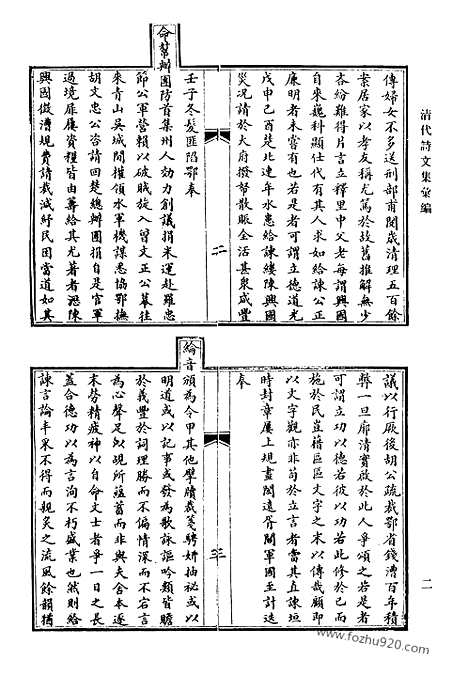 清代詩文集彙編
傳婦女不多送刑部甫閱歲清理五百餘
案居家以孝友稱尤篤於故舊推解無少
吝紛難得片言立釋里中父老每謂興國
自來科顯仕代有其人求如給諫公正
廉明者未嘗有也若是者可謂立德道光
戊申己酉楚北連年水患給諫縷陳興國
災況請於大府撥帑散賑全活甚衆咸豐
二
壬子冬髮匪陷鄂奉
命幫辦團防首集州人効力創議捐米運赴羅忠
節公軍營賴以破賊旋入曾文正公幕往
來青山吳城間權領水軍機謀悉協鄂撫
胡文忠公咨請回楚總辦團捐自是官軍
過境扉屨資糧皆由籌給其尤著者陳
興國漕規費請裁減紓民困當道如其
議以行厥後胡公疏裁鄂省錢漕百年積
弊一旦廓清實啟於此人爭頌之若是者
可謂立功以德若彼以功若此修於己而
施於民豈藉區區文字之末以傳哉顧即
以文字觀亦非苟於立言者當其直諫垣
時封章屢上規畫閎遠胥關軍國至計迭
奉
三
綸音頒為令甲其他擘牋裁箋騁妍抽祕或以
明道或以記事或發為歌詠謳吟類皆贍
於義豐於詞理勝而不偏情深而不宕言
為心聲足以覘所蘊蓄而非與夫舍本逐
末勞精疲神以自命文士者爭一日之長
蓋合德功以為言洵不朽盛業也然則給
諫言論丰采不得而親炙之流風餘韻猶
二
www.fozhu920.com